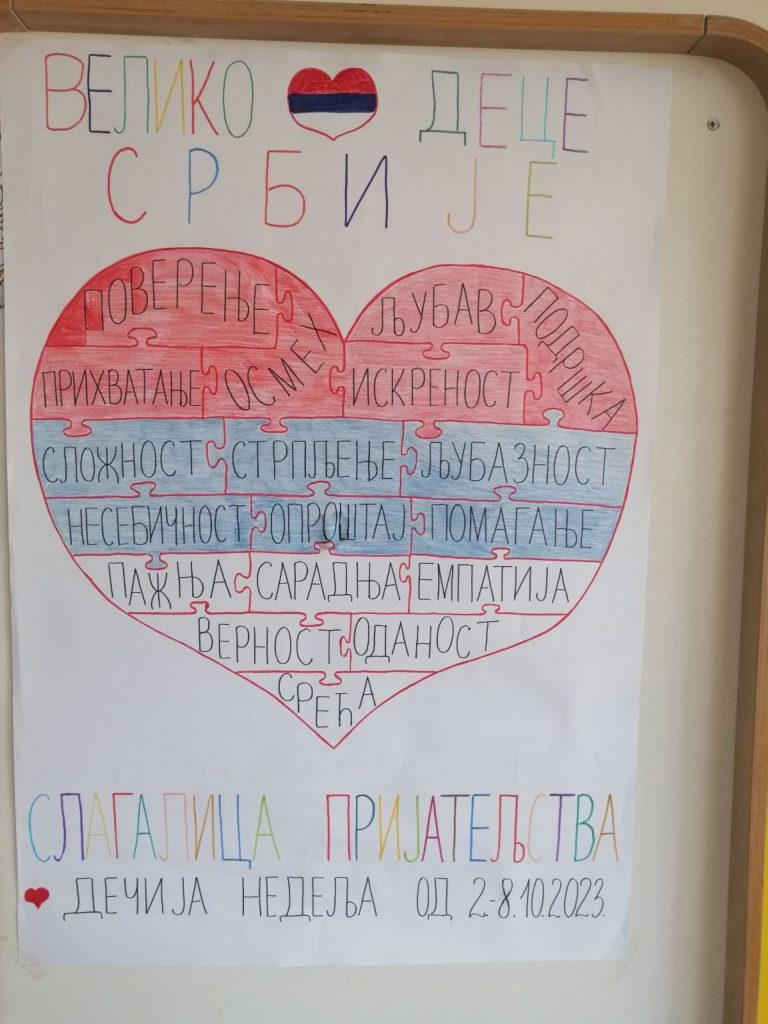 ВЕЛИКО ДЕЦЕ
СРБИЈЕ
ПОВЕРЕЊЕ ЉУБАВ ПОДРШКА
ПРИХВАТАЊЕ ОСМЕХ ИСКРЕНОСТ
СЛОЖНОСТ СТРПЉЕЊЕ ЉУБАЗНОСТ
НЕСЕБИЧНОСТ ОПРОШТАЈ ПОМАГАЊЕ
ПАЖЊА САРАДЊА ЕМПАТИЈА
ВЕРНОСТ ОДАНОСТ
СРЕЋА
СЛАГАЛИЦА ПРИЈАТЕЉСТВА
ДЕЧИЈА НЕДЕЉА ОД 2.-8.10.2023.